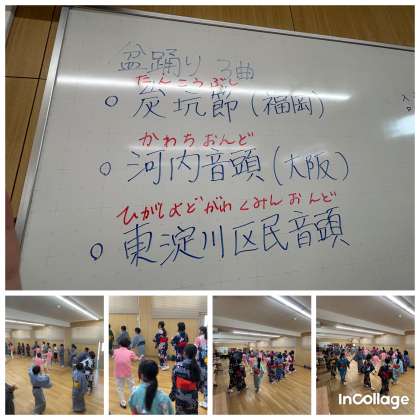 盆踊り 3曲
たんこうぶし
○ 炭坑節(福岡)
かわちおんど
○ 河内音頭(大阪)
ひがしよどがわくみんおんど
○ 東淀川区民音頭
InCollage